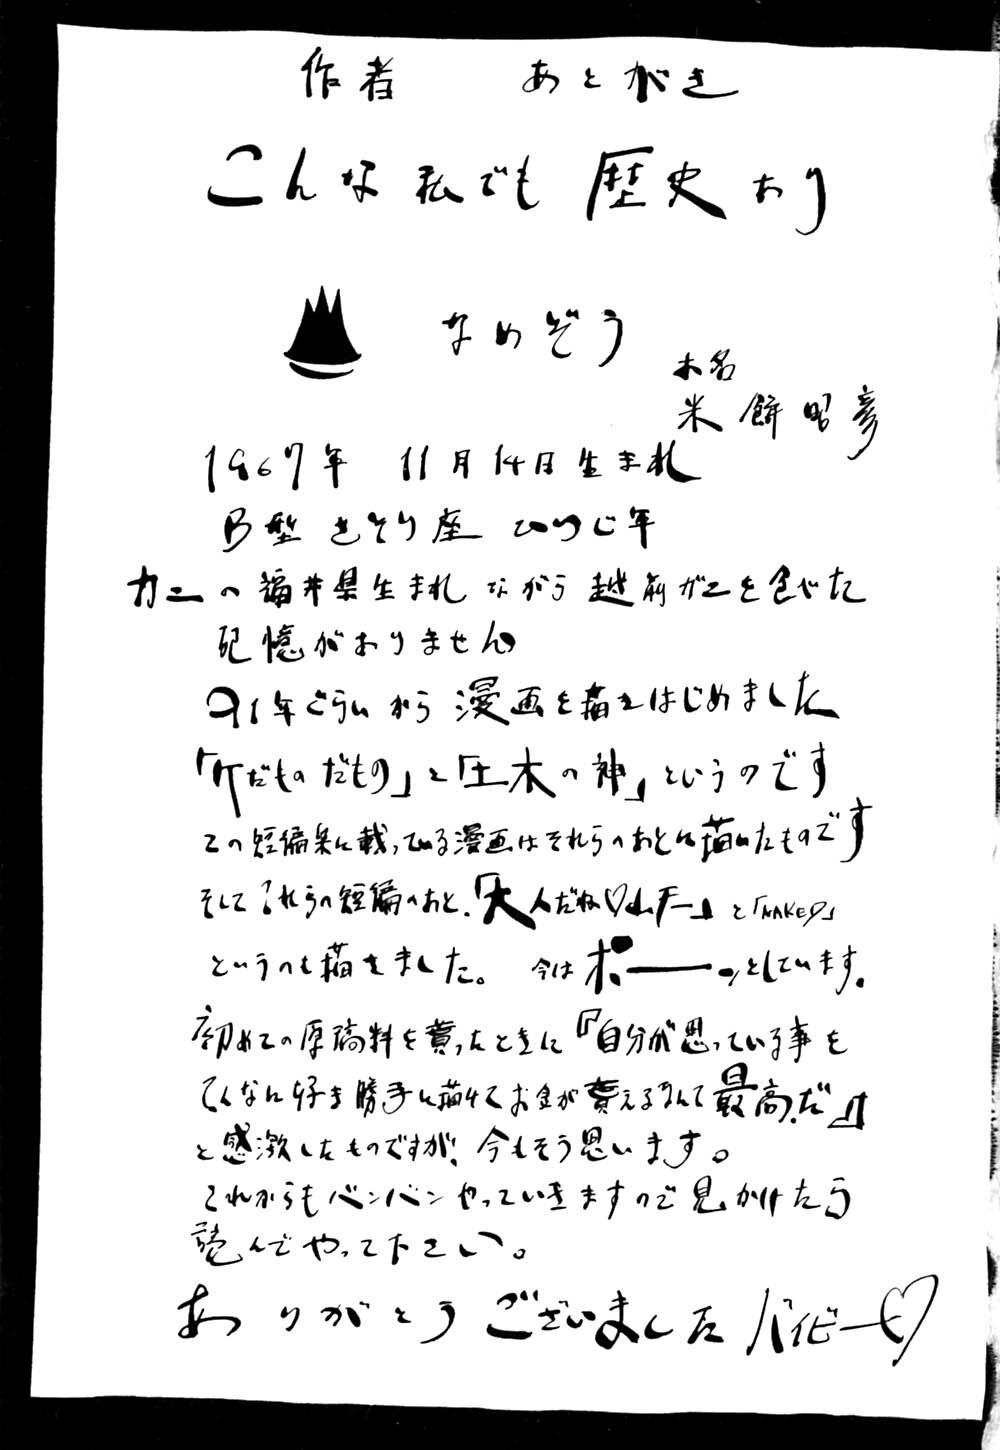 作者　あとがき
こんな私でも歴史あり
なめぞう
本名
米餅昭彦
1967年　11月14日生まれ
B型 さそり座 ひつじ年
カニの福井県生まれながら越前ガニを食べた
記憶がありません
91年ぐらいから漫画を描きはじめました
「けだものだもの」と「土木の神」というのです
この短編集に載っている漫画はそれらのあとに描いたものです
そしてこれらの短編のあと、「大人だね♡ムチー」と「NAKED」
というのも描きました。 今はボーーッとしています。
初めての原稿料を貰ったときに『自分が思っている事を
こんなに好き勝手に描けてお金が貰えるなんて最高だ』!!
と感激したものですが、今もそう思います。
これからもバンバンやっていきますので見かけたら
読んでやって下さい。
ありがとうございました バイビー♡